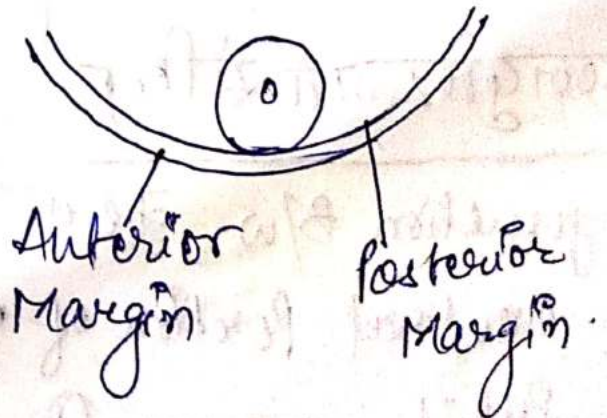 Anterior
Margin
Posterior
Margin.